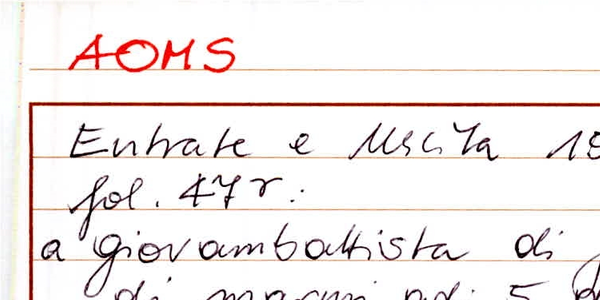 AOMS
Entrate e Uscita
fol. 47 r.
a giovambattista di
di ad: 5